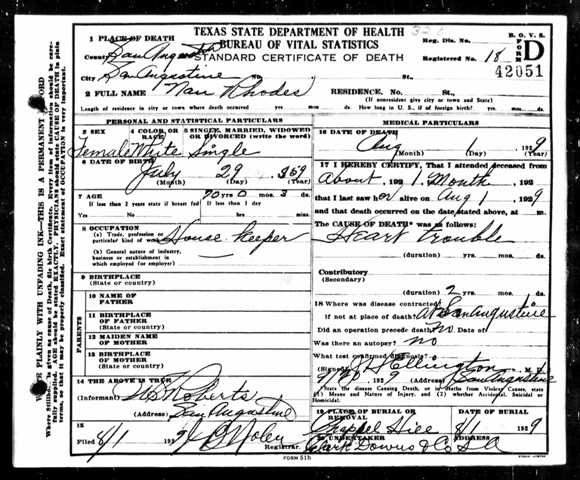 TEXAS STATE DEPARTMENT OF HEALTH
BUREAU OF VITAL STATISTICS
STANDARD CERTIFICATE OF DEATH
Reg. Dis. No.
B. O. V. S.
FORM D
Registered No. 18
42051
1 PLACE OF DEATH
County San Augustine
City San Augustine No. St.,
2 FULL NAME Nan Rhodes RESIDENCE. No. St.,
(If nonresident give city or town and State)
Length of residence in city or town where death occurred yrs mos ds. How long in U. S., if of foreign birth? yrs. mos. ds.
PERSONAL AND STATISTICAL PARTICULARS
3 SEX 4 COLOR OR RACE 5 SINGLE, MARRIED, WIDOWED OR DIVORCED (write the word)
Female White Single
6 DATE OF BIRTH
July 29 1859
(Month) (Day) (Year)
7 AGE 70 yrs 0 mos. 3 ds.
If less than 2 years state if breast fed If less than 1 day
Yes No hrs. min.
8 OCCUPATION
(a) Trade, profession or particular kind of work House keeper
(b) General nature of industry, business or establishment in which employed (or employer)
9 BIRTHPLACE
(State or country)
PARENTS
10 NAME OF FATHER
11 BIRTHPLACE OF FATHER
(State or country)
12 MAIDEN NAME OF MOTHER
13 BIRTHPLACE OF MOTHER
(State or country)
14 THE ABOVE IS TRUE
(Informant) Roberts
(Address) San Augustine
15
Filed 8/1 192 Registrar.
MEDICAL PARTICULARS
16 DATE OF DEATH
Aug 1 1929
(Month) (Day) (Year)
17 I HEREBY CERTIFY, That I attended deceased from
About, 192 1 Month, 192
that I last saw her alive on Aug 1 1929
and that death occurred on the date stated above, at m.
The CAUSE OF DEATH* was as follows:
Heart trouble
(duration) yrs. mos. ds.
Contributory
(Secondary)
(duration) 2 yrs. mos. ds.
18 Where was disease contracted
if not at place of death? At San Augustine
Did an operation precede death? No Date of
Was there an autopsy? no
What test confirmed diagnosis?
(Signed) Ellington M. D.
192 (Address) San Augustine
State the disease Causing Death, or in deaths from Violent Causes, state (1) Means and Nature of Injury, and (2) whether Accidental, Suicidal or Homicidal.
19 PLACE OF BURIAL OR REMOVAL DATE OF BURIAL
Chappel Hill 8/1 1929
20 UNDERTAKER (Address)
Clark Downs & Co S A
FORM 51b